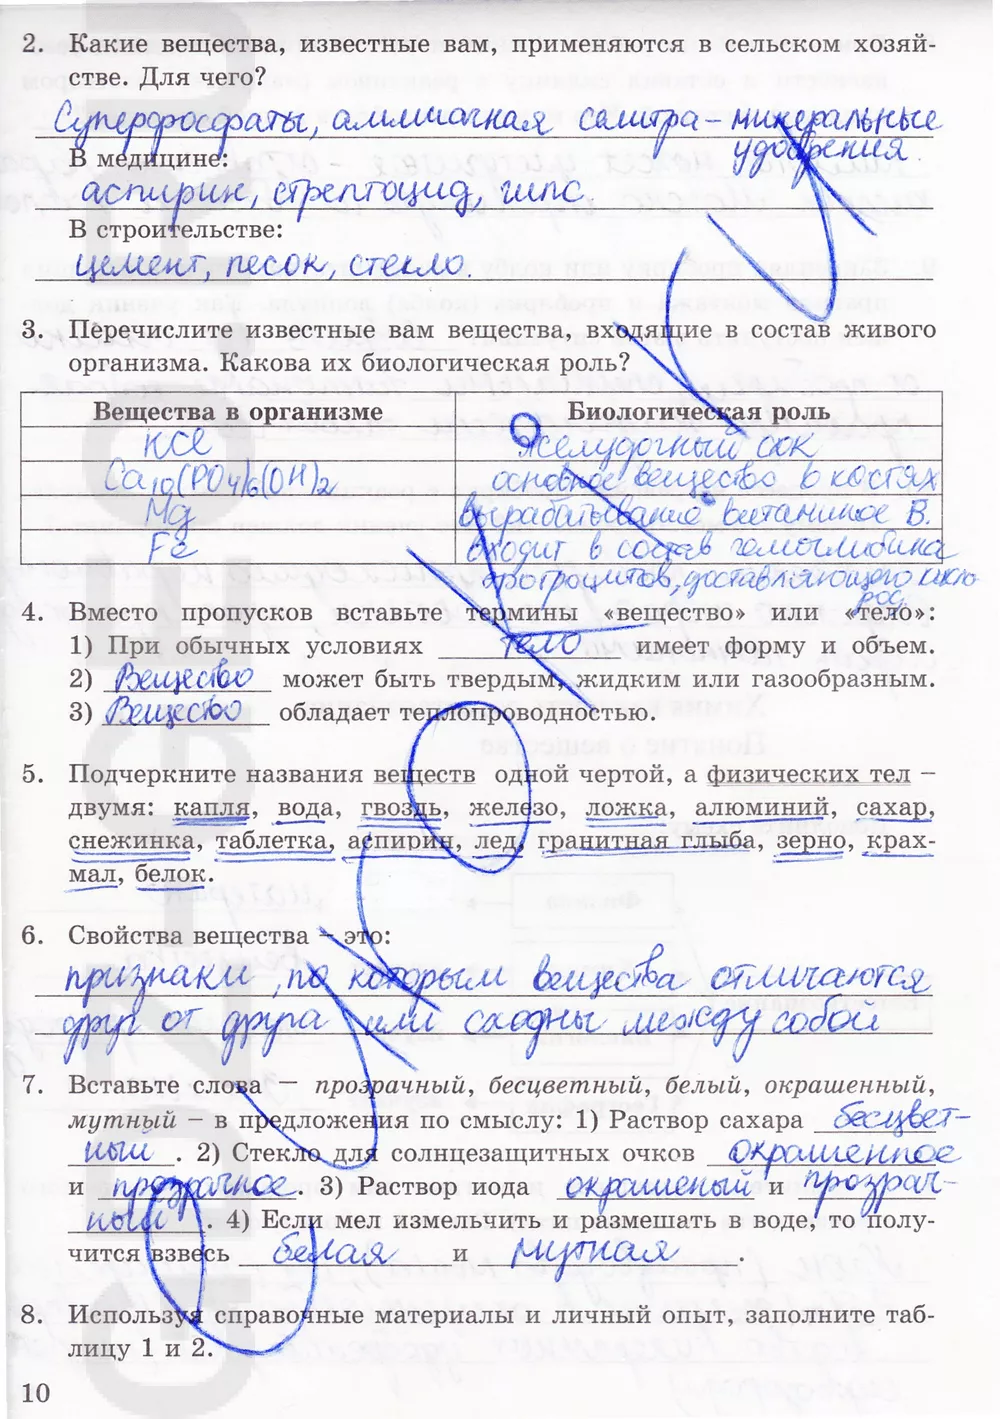 2. Какие вещества, известные вам, применяются в сельском хозяй-
стве. Для чего?
Суперфосфаты, аммиачная селитра – минеральные
удобрения.
В медицине:
аспирин, стрептоцид, гипс.
В строительстве:
цемент, песок, стекло.
3. Перечислите известные вам вещества, входящие в состав живого
организма. Какова их биологическая роль?
Вещества в организме Биологическая роль
HCl желудочный сок
Ca10(PO4)6(OH)2 основное вещество в костях
Mg вырабатывание витаминов B.
Fe входит в состав гемоглобина
эротроцитов, доставляющего кисло
род.
4. Вместо пропусков вставьте термины «вещество» или «тело»:
1) При обычных условиях тело имеет форму и объем.
2) Вещество может быть твердым, жидким или газообразным.
3) Вещество обладает теплопроводностью.
5. Подчеркните названия веществ одной чертой, а физических тел –
двумя: капля, вода, гвоздь, железо, ложка, алюминий, сахар,
снежинка, таблетка, аспирин, лед, гранитная глыба, зерно, крах-
мал, белок.
6. Свойства вещества – это:
признаки, по которым вещества отличаются
друг от друга или сходны между собой
7. Вставьте слова — прозрачный, бесцветный, белый, окрашенный,
мутный – в предложения по смыслу: 1) Раствор сахара бесцвет-
ный . 2) Стекло для солнцезащитных очков окрашенное
и прозрачное. 3) Раствор иода окрашеный и прозрач-
ный . 4) Если мел измельчить и размешать в воде, то полу-
чится взвесь белая и мутная .
8. Используя справочные материалы и личный опыт, заполните таб-
лицу 1 и 2.
10